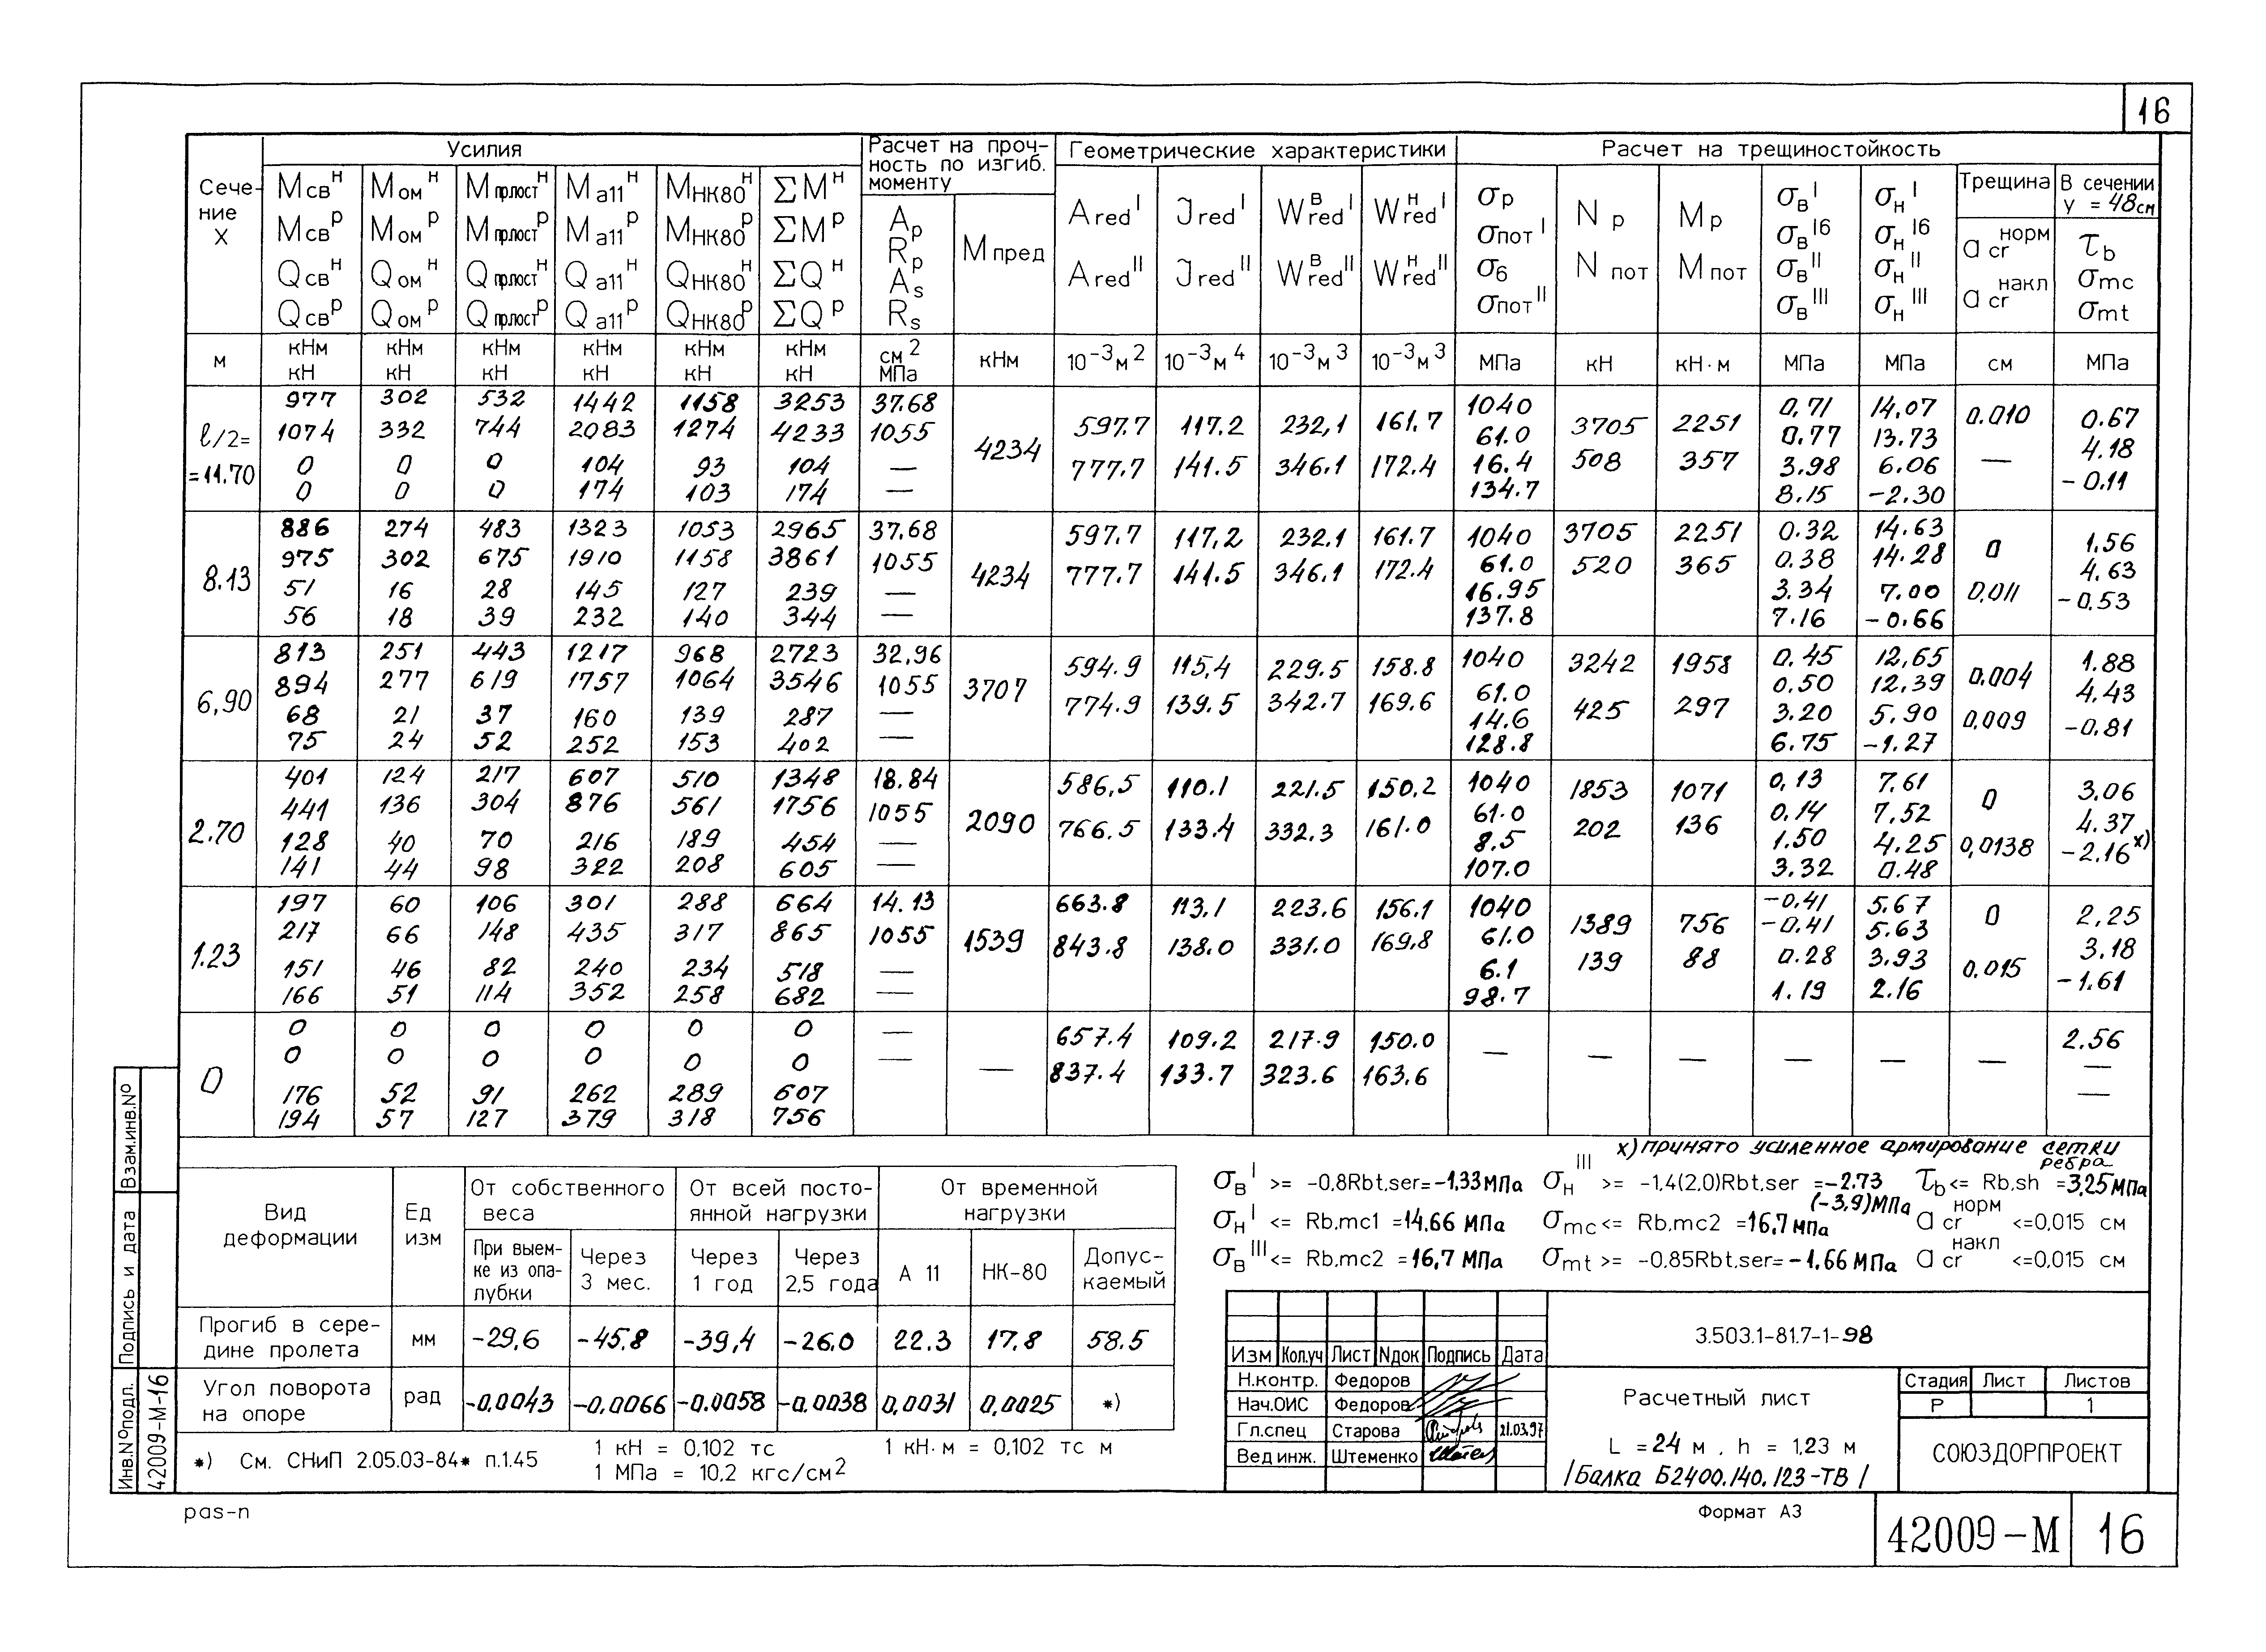 16
Усилия
Расчет на проч-
ность по изгиб.
моменту
Геометрические характеристики
Расчет на трещиностойкость
Сече-
ние
X
Mсвᴴ Mомᴴ Mпр.постᴴ Mа11ᴴ Mнк80ᴴ ΣMᴴ
Mсвᴾ Mомᴾ Mпр.постᴾ Mа11ᴾ Mнк80ᴾ ΣMᴾ
Qсвᴴ Qомᴴ Qпр.постᴴ Qа11ᴴ Qнк80ᴴ ΣQᴴ
Qсвᴾ Qомᴾ Qпр.постᴾ Qа11ᴾ Qнк80ᴾ ΣQᴾ
Ap
Rp
As
Rs
Mпред
Ared I Jred I Wred В I Wred Н I
Ared II Jred II Wred В II Wred Н II
σр
σпот I
σб
σпот II
Nр
Nпот
Mр
Mпот
σв I
σв Iб
σв II
σв III
σн I
σн Iб
σн II
σн III
Трещина
a cr норм
a cr накл
В сечении
y = 48см
τb
σmc
σmt
м кНм кНм кНм кНм кНм кНм см2 кНм 10-3м2 10-3м4 10-3м3 10-3м3 МПа кН кН·м МПа МПа см МПа
кН кН кН кН кН кН МПа
ℓ/2=
=11.70
977 302 532 1442 1158 3253 37.68
1074 332 744 2083 1274 4233 1055
0 0 0 104 93 104 —
0 0 0 174 103 174 —
4234
597.7 117.2 232,1 161.7
777.7 141.5 346.1 172.4
1040
61.0
16.4
134.7
3705 2251
508 357
0,71 14,07
0.77 13.73
3.98 6.06
8.15 -2.30
0.010
—
0.67
4.18
-0.11
8.13
886 274 483 1323 1053 2965 37.68
975 302 675 1910 1158 3861 1055
51 16 28 145 127 239 —
56 18 39 232 140 344 —
4234
597.7 117,2 232.1 161.7
777.7 141.5 346.1 172.4
1040
61.0
16.95
137.8
3705 2251
520 365
0.32 14.63
0.38 14.28
3.34 7.00
7.16 -0.66
0
0,011
1.56
4.63
-0.53
6,90
813 251 443 1217 968 2723 32,96
894 277 619 1757 1064 3546 1055
68 21 37 160 139 287 —
75 24 52 252 153 402 —
3707
594.9 115,4 229.5 158.8
774.9 139.5 342.7 169.6
1040
61.0
14.6
128.8
3242 1958
425 297
0.45 12,65
0.50 12,39
3.20 5.90
6.75 -1.27
0.004
0,009
1.88
4.43
-0.81
2.70
401 124 217 607 510 1348 18.84
441 136 304 876 561 1756 1055
128 40 70 216 189 454 —
141 44 98 322 208 605 —
2090
586,5 110.1 221.5 150,2
766.5 133.4 332.3 161.0
1040
61.0
8.5
107.0
1853 1071
202 136
0,13 7.61
0.14 7,52
1.50 4.25
3.32 0.48
0
0,0138
3,06
4.37
-2.16 х)
1.23
197 60 106 301 288 664 14.13
217 66 148 435 317 865 1055
151 46 82 240 234 518 —
166 51 114 352 258 682 —
1539
663.8 113,1 223.6 156.1
843.8 138.0 331.0 169.8
1040
61.0
6.1
98.7
1389 756
139 88
-0.41 5.67
-0.41 5.63
0.28 3,93
1.19 2.16
0
0.015
2,25
3.18
-1.61
0
0 0 0 0 0 0 —
0 0 0 0 0 0 —
176 52 91 262 289 607
194 57 127 379 318 756
—
657.4 109.2 217.9 150.0
837.4 133.7 323.6 163.6
— — — — — —
2.56
—
—
х) принято усиленное армирование сетки
ребра
σв I >= -0,8Rbt,ser=-1,33МПа σн III >= -1,4(2,0)Rbt,ser =-2.73 τb<= Rb,sh =3,25МПа
(-3,9)МПа
σн I <= Rb,mc1 =14.66 МПа σmc<= Rb,mc2 =16,7мпа a cr норм <=0,015 см
σв III<= Rb,mc2 =16,7 МПа σmt>= -0,85Rbt,ser=-1,66МПа a cr накл <=0,015 см
Вид
деформации
Ед
изм
От собственного
веса
От всей посто-
янной нагрузки
От временной
нагрузки
При выем-
ке из опа-
лубки
Через
3 мес.
Через
1 год
Через
2,5 года
А 11
НК-80
Допус-
каемый
Прогиб в сере-
дине пролета
мм -29,6 -45,8 -39,4 -26.0 22.3 17.8 58.5
Угол поворота
на опоре
рад -0,0043 -0,0066 -0.0058 -0.0038 0,0031 0,0025 *)
*) См. СНиП 2.05.03-84* п.1.45
1 кН = 0,102 тс 1 кН·м = 0,102 тс м
1 МПа = 10,2 кгс/см2
Изм Кол.уч Лист Nдок Подпись Дата
Н.контр. Федоров
Нач.ОИС Федоров
Гл.спец Старова 21.03.97
Вед инж. Штеменко
3.503.1-81.7-1-98
Расчетный лист
L =24 м , h = 1,23 м
/Балка Б2400.140.123-ТВ/
Стадия Лист Листов
Р 1
СОЮЗДОРПРОЕКТ
Взам.инв.Nº
Подпись и дата
Инв.Nºподл.
42009-М-16
pas-n
Формат А3
42009-М 16